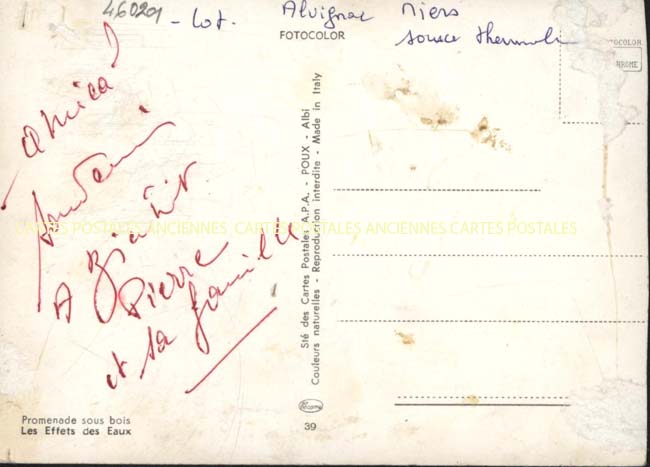 460201
- Lot. Alvignac Miers
source thermale
FOTOCOLOR
OCOLOR
HROME
amical
A Bientôt
Pierre
et sa famille
CARTES POSTALES ANCIENNES CARTES POSTALES ANCIENNES CARTES POSTALES
Sté des Cartes Postales A.P.A. - POUX - Albi
Couleurs naturelles - Reproduction interdite - Made in Italy
39
Promenade sous bois
Les Effets des Eaux